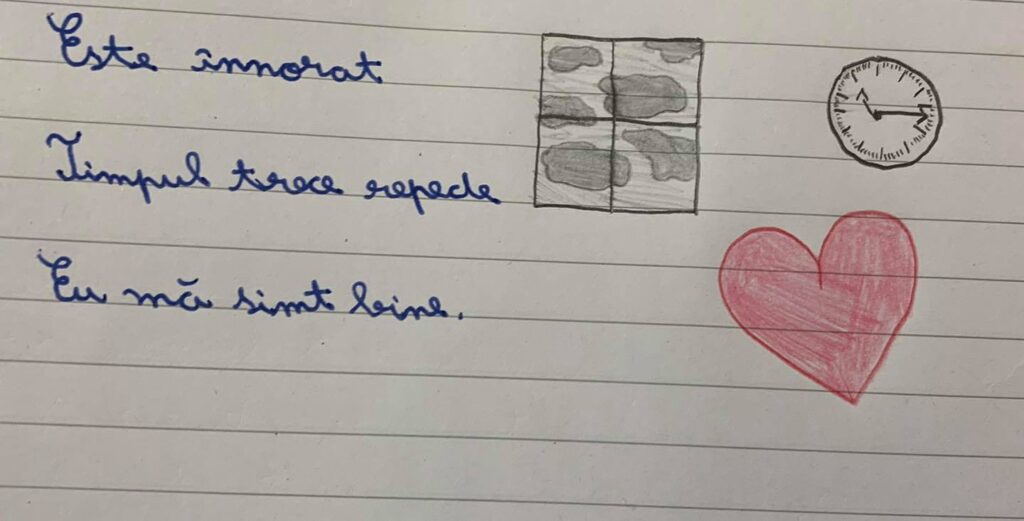 Este înnorat
Timpul trece repede
Eu mă simt bine.